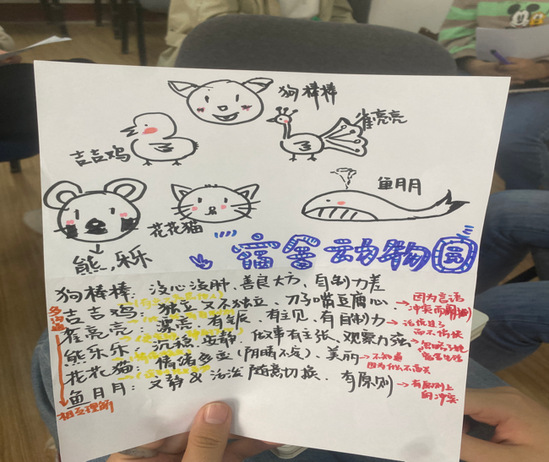 狗棒棒
雀亮亮
吉吉鸡
鱼月月
花花猫
熊乐乐
宿舍动物园
狗棒棒：没心没肺，善良大方，自制力差
吉吉鸡：独立又不独立，刀子嘴豆腐心
雀亮亮：漂亮，有主见，有自制力
熊乐乐：沉稳，安静，做事有主张，观察力强
花花猫：情绪多变（阴晴不定），美丽
鱼月月：文静&活泼随意切换，有原则
因为言语
冲突而
不知道
因为什么不高兴
有原则上
的冲突
多沟通
相互理解